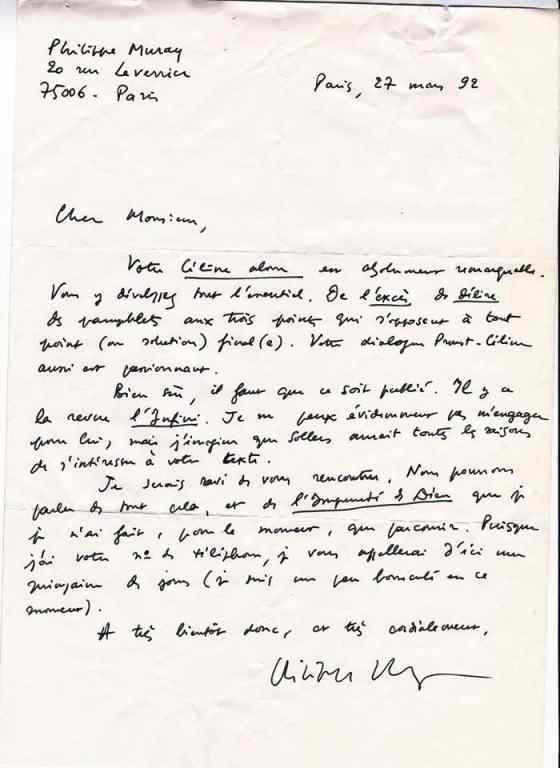 Philippe Muray
20 rue Leverrier
75006 - Paris
Paris, 27 mars 92
Cher Monsieur,
Votre Céline alors est absolument remarquable.
Vous y développez tout l'essentiel. De l'excès de délire
des pamphlets aux trois points qui s'opposent à tout
point (ou solution) final(e). Votre dialogue Proust-Céline
aussi est passionnant.
Bien sûr, il faut que ce soit publié. Il y a
la revue l'Infini. Je ne peux évidemment pas m'engager
pour lui, mais j'imagine que Sollers aurait toutes les raisons
de s'intéresser à votre texte.
Je serais ravi de vous rencontrer. Nous pourrons
parler de tout cela, et de l'Impunité de Dieu que je
je n'ai fait, pour le moment, que parcourir. Puisque
j'ai votre n° de téléphone, je vous appellerai d'ici une
quinzaine de jours (je suis un peu bousculé en ce
moment).
A très bientôt donc, et très cordialement,
Philippe Muray